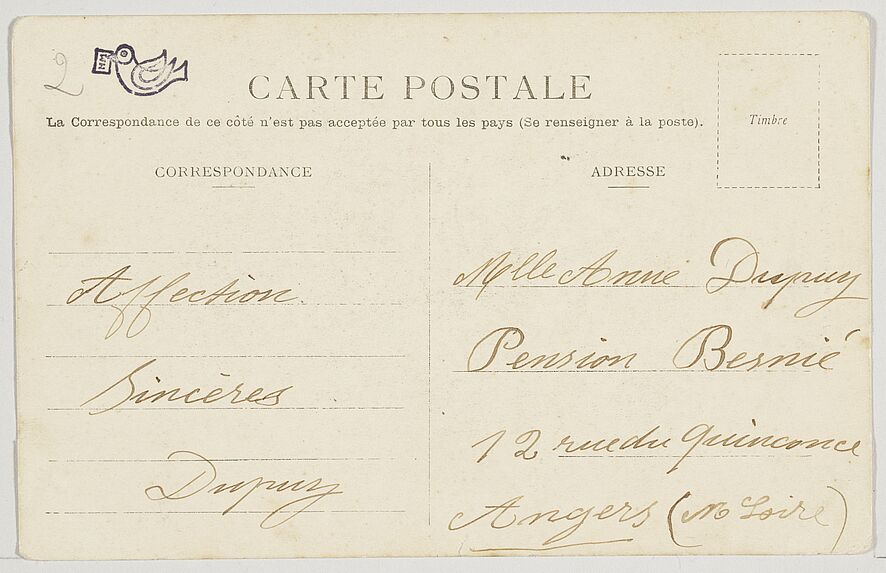 2
CARTE POSTALE
La Correspondance de ce côté n'est pas acceptée par tous les pays (Se renseigner à la poste).
Timbre
CORRESPONDANCE
Affection
Sincères
Dupuy
ADRESSE
Mlle Anne Dupuy
Pension Besnié
12 rue du Quinconce
Angers (M Loire)